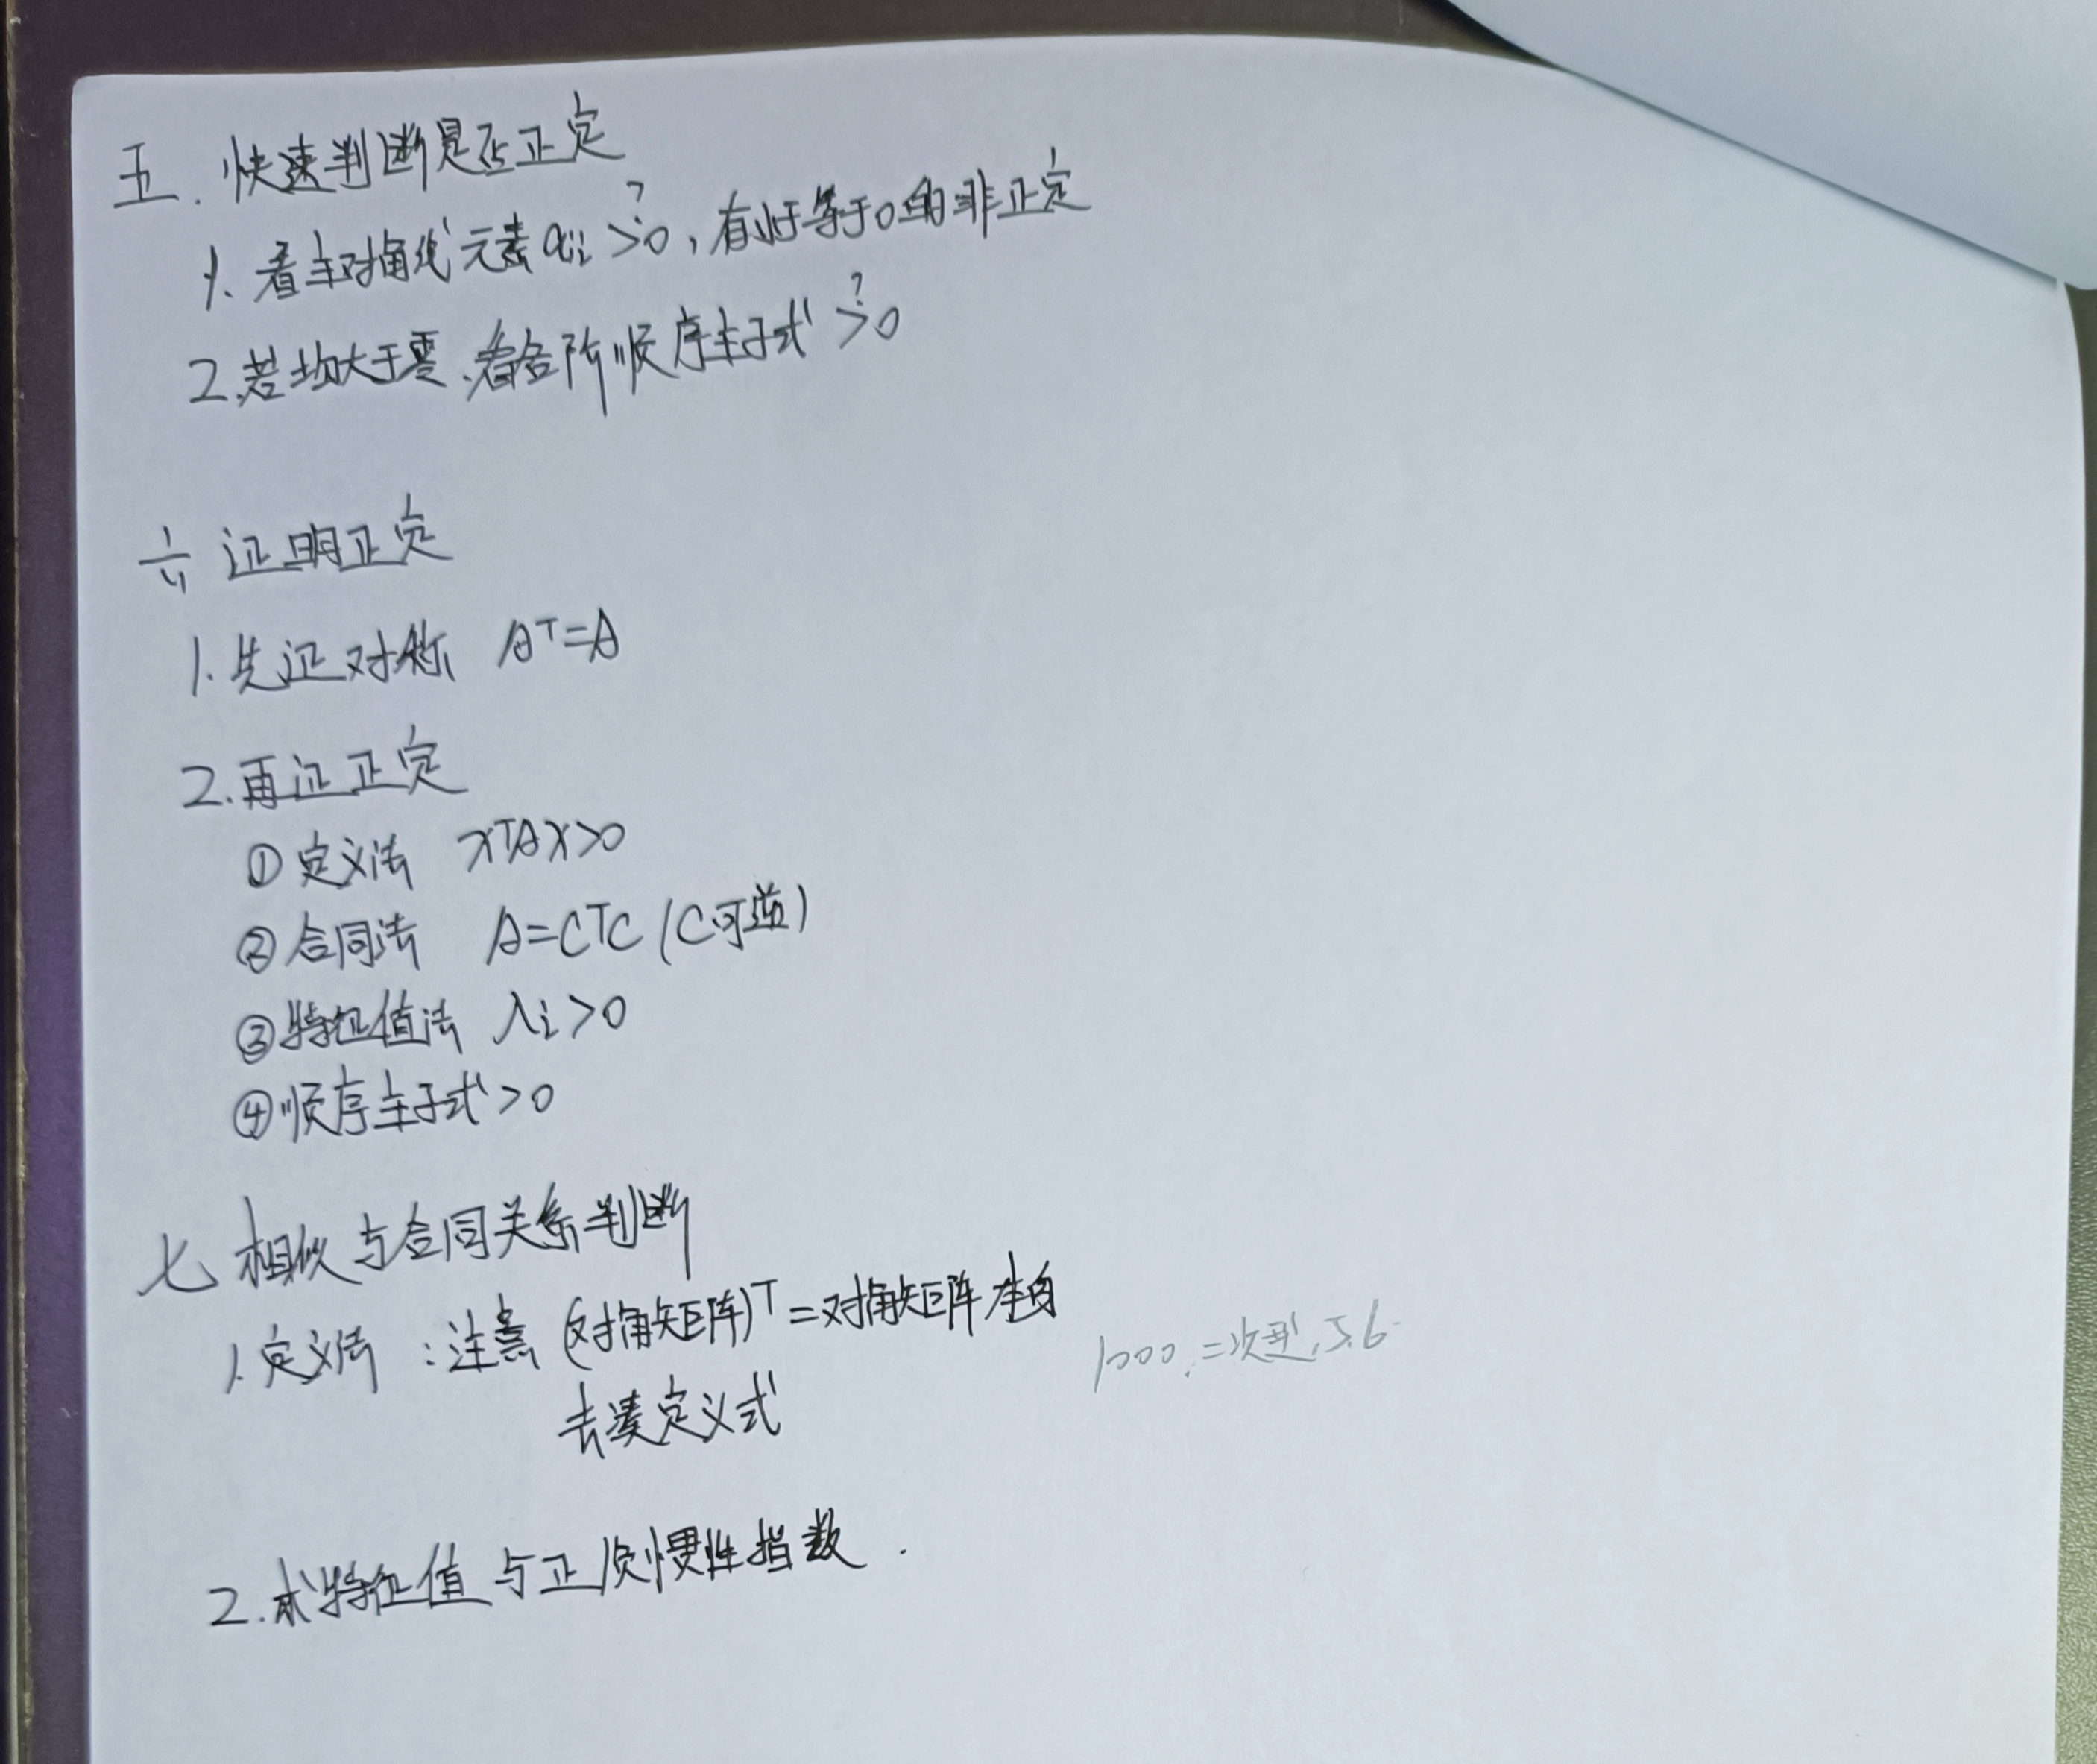 五. 快速判断是否正定
1. 看主对角线元素 aii >? 0, 有小于等于0的非正定
2. 若均大于零、看各阶顺序主子式 >? 0
六 证明正定
1. 先证对称 Aᵀ=A
2. 再证正定
① 定义法 xᵀAx>0
② 合同法 A=CᵀC (C可逆)
③ 特征值法 λi>0
④ 顺序主子式>0
七 相似与合同关系判断
1. 定义法 : 注意 (对角矩阵)ᵀ=对角矩阵本身
去凑定义式
1000. 二次型, 5.6
2. 求特征值与正负惯性指数.